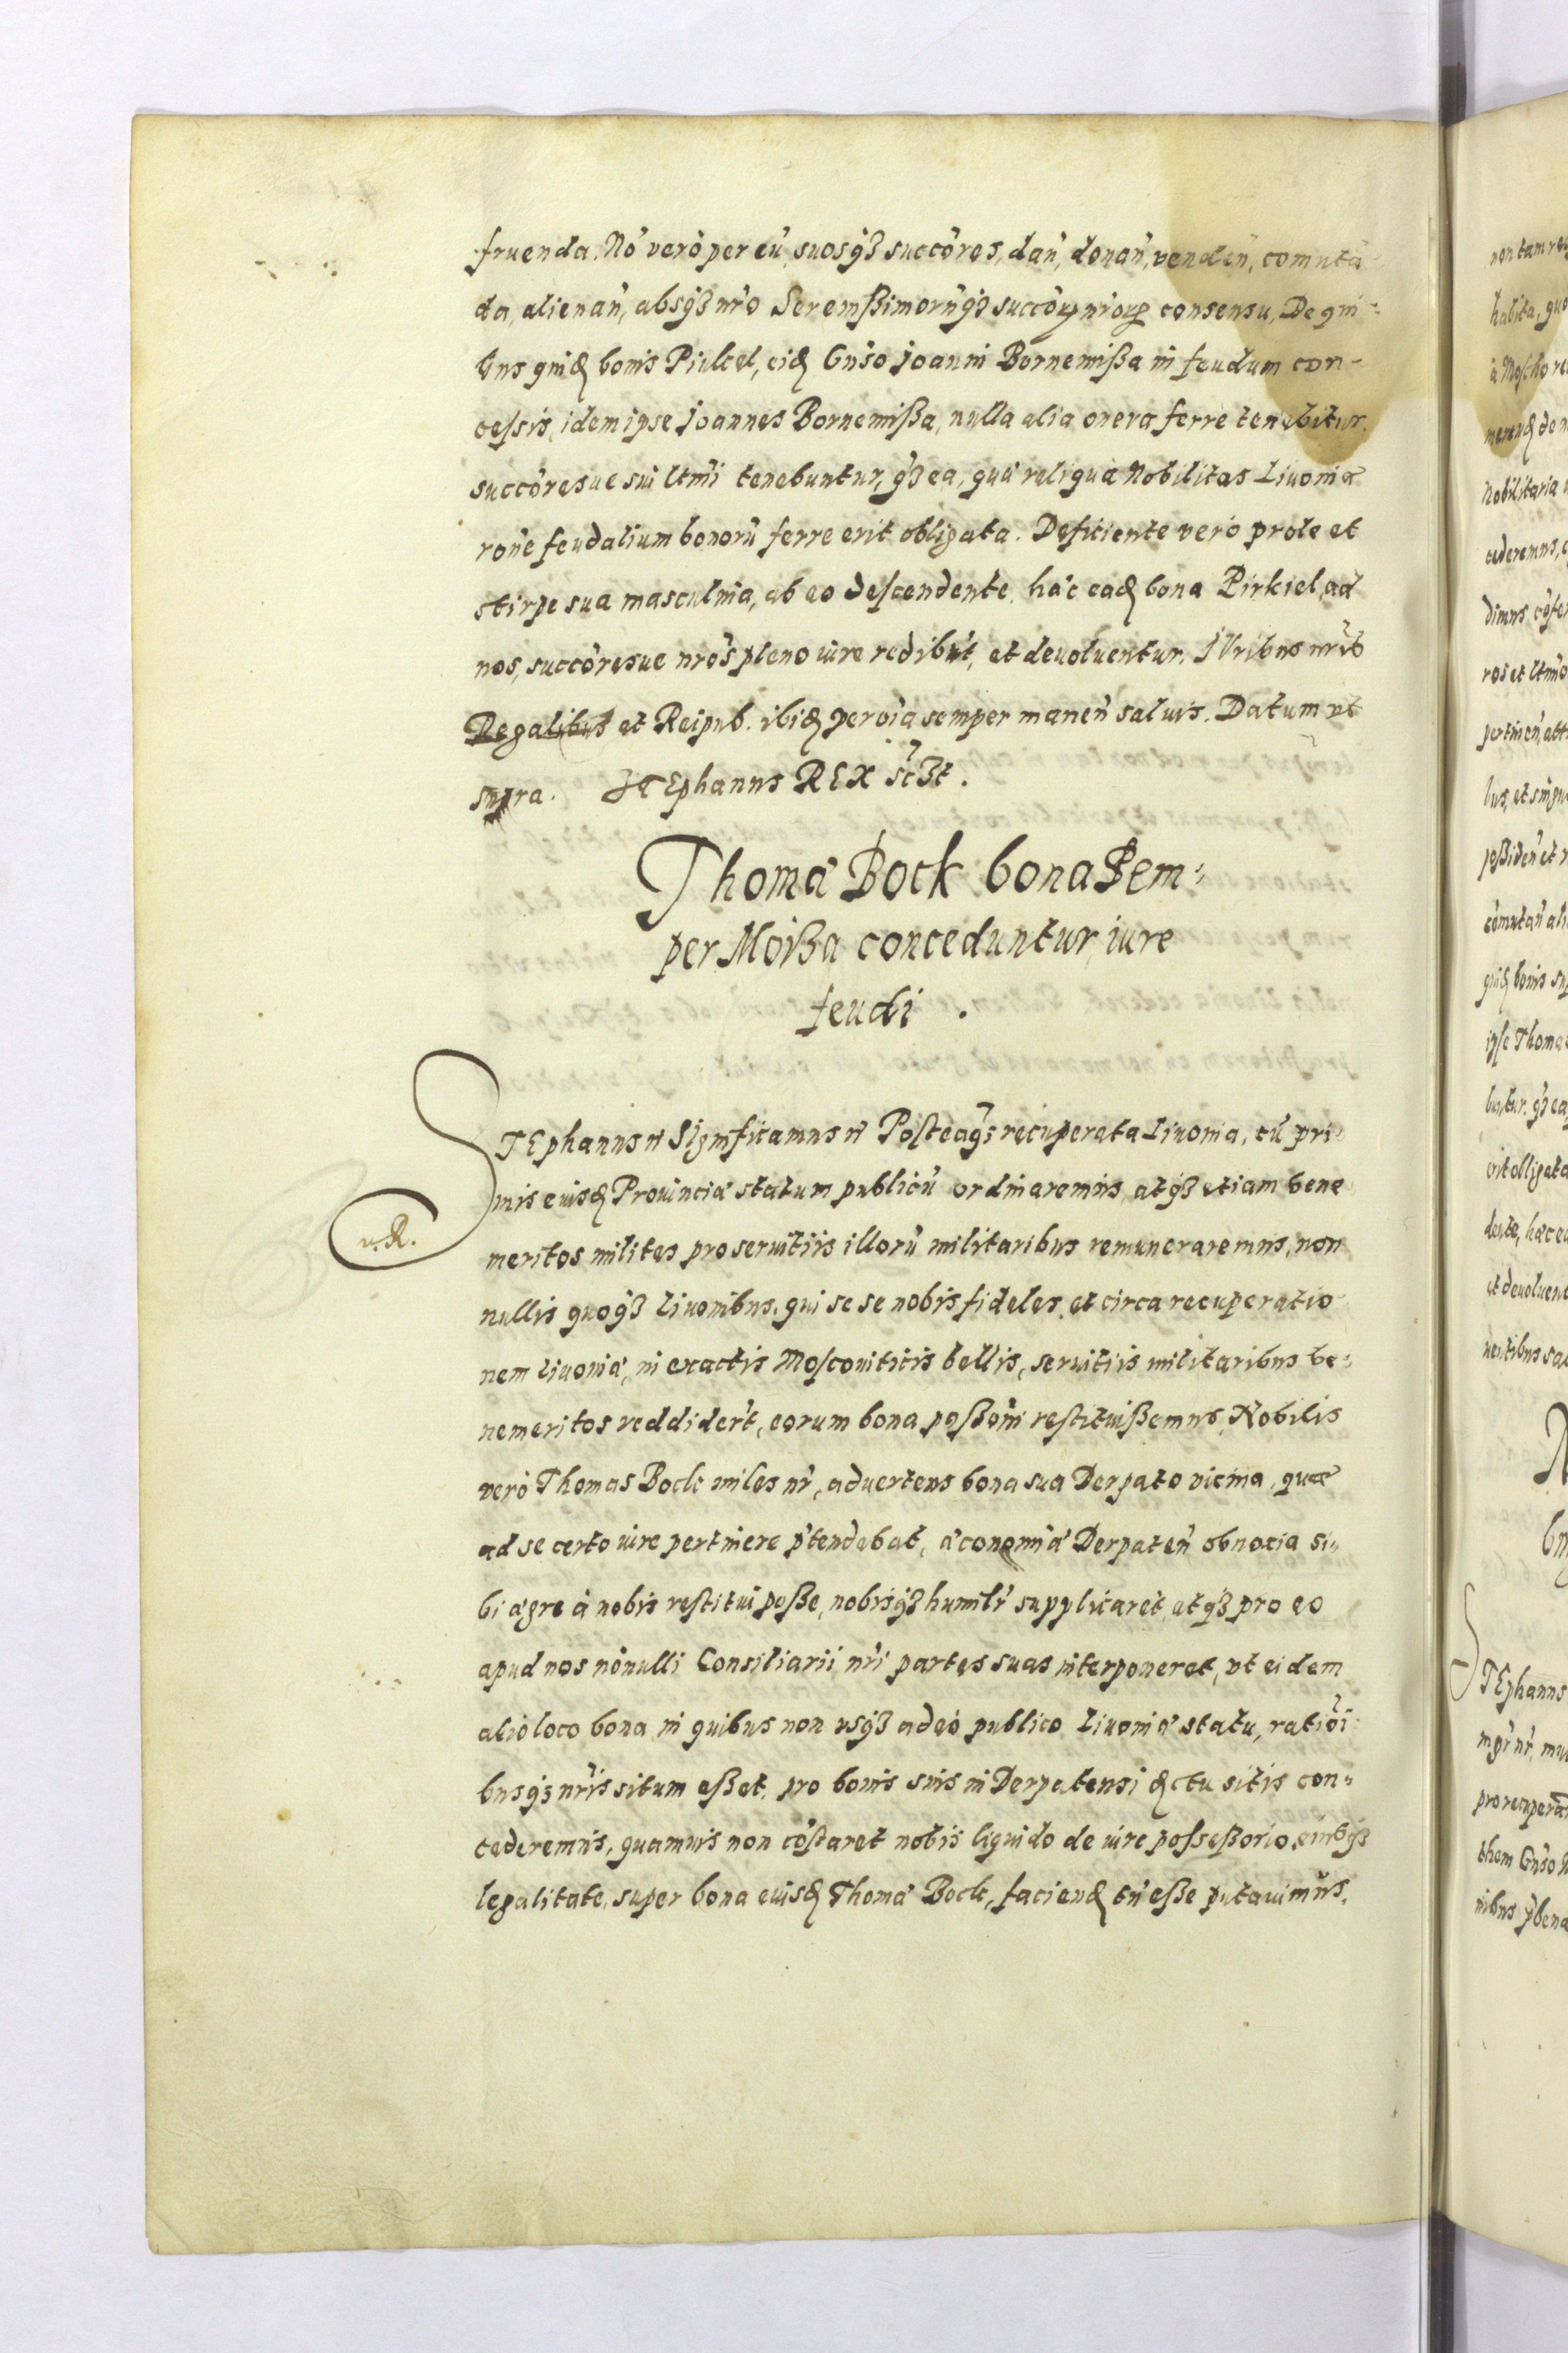 fruenda. Nō verò per eū, suosq̃ȝ succōres, dañ, donañ, vendeñ, comutā
da, alienañ, absq̃ȝ nr̃o Serenißimorūq̃ȝ succōꝝ nr̃oꝝ consensu, De qui-
bus quidꝫ bonis Pirkel, eidꝫ Gn̄so Joanni Bornemißa in feudum con-
cessis, idem ipse Joannes Bornemißa, nulla alia onera ferre tenebitur,
succōresue sui ltm̄i tenebuntur, q̃ȝ ea, quæ reliqua Nobilitas Liuoniæ
rōne feudalium bonorū ferre erit obligata. Deficiente verò prole et
stirpe sua masculina, ab eo descendente, hæc eadꝫ bona Pirkiel, ad
nos, succōresue nr̃os pleno iure redibūt, et deuoluentur. IVribus nr̃is
Regalibus et Reipub. ibidꝫ per oīa semper maneñ saluis. Datum vt
supra. STEphanus REX sc̃ȝt.
Thomæ Bock bona Sem-
per Moißa conceduntur iure
feudi.
STEphanus ꝛc̃ Significamus ꝛc̃ Posteaq̃ȝ recuperata Liuonia, cū pri
mis eiusdꝫ Prouinciæ statum publicū ordinaremus, atq̃ȝ etiam bene
v. R.
meritos milites pro seruitiis illorū militaribus remuneraremus, non
nullis quoq̃ȝ Liuonibus, qui se se nobis fideles, et circa recuperatio
nem Liuoniæ, in exactis Moscouiticis bellis, seruitiis militaribus be-
nemeritos reddider̃t, eorum bona poßōni restituißemus, Nobilis
verò Thomas Bock miles nr̃, aduertens bona sua Derpato vicina, quæ
ad se certo iure pertinere p̃tendebat, æconomiæ Derpateñ obnoxia si-
bi ægre à nobis restitui poße, nobisq̃ȝ humilr̃ supplicaret, atq̃ȝ pro eo
apud nos nōnulli Consiliarii nr̃i partes suas interponeret, vt eidem
alio loco bona, in quibus non vsq̃ȝ adeò publico Liuoniæ statu, ratiōi
busq̃ȝ nr̃is situm eßet, pro bonis suis in Derpatensi dꝫctu sitis con-
cederemus, quamuis non cōstaret nobis liquido de iure possessorio, eiusq̃ȝ
legalitate, super bona eiusdꝫ Thomæ Bock, faciendꝫ tn̄ eße putauimus,